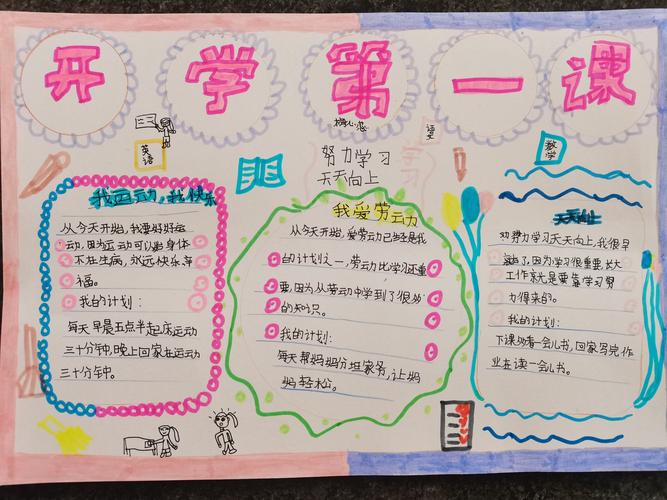 开学第一课
英语
语文
数学
努力学习
天天向上
学习
我运动,我快乐
从今天开始,我要好好运
动,因为运动可以当身体
不在生病,永远快乐幸
福。
我的计划:
每天早晨五点半起床运动
三十分钟,晚上回家在运动
三十分钟。
我爱劳动
从今天开始,爱劳动已经是我
的计划之一,劳动比学习还重
要,因为从劳动中学到了很多
的知识。
我的计划:
每天帮妈妈分担家务,让妈
妈轻松。
天天向上
努力学习天天向上,我很早
因为学习很重要,长大
工作就是要靠学习努
力得来的。
我的计划:
下课会看一会儿书,回家写完作
业在读一会儿书。